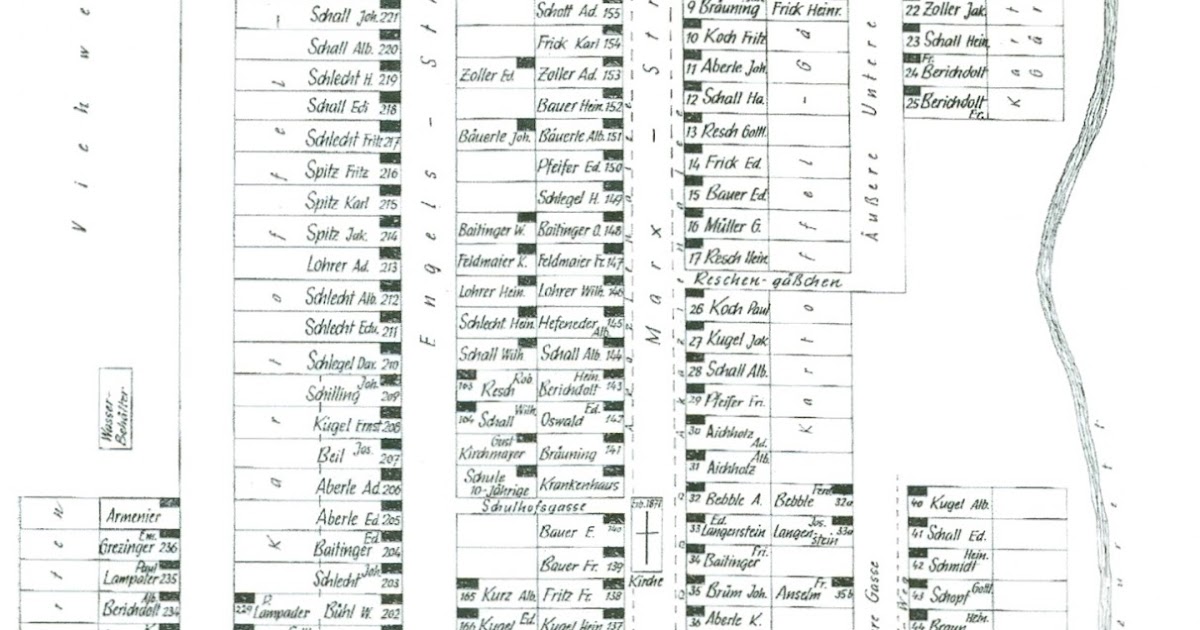 Viehwe
Wasser-
Behälter
Armenier
Em.
Grezinger 236
Paul
Lampater 235
Alb.
Berichdolt 234
Kartoffel
Schall Joh. 221
Schall Alb. 220
Schlecht H. 219
Schall Edi 218
Schlecht Fritz 217
Spitz Fritz 216
Spitz Karl 215
Spitz Jak. 214
Lohrer Ad. 213
Schlecht Alb. 212
Schlecht Edu. 211
Schlegel Dav. 210
Joh.
Schilling 209
Kugel Ernst 208
Beil Jos. 207
Aberle Ad. 206
Aberle Ed. 205
Ed.
Baitinger 204
Schlecht Joh. 203
229 Lampader
Bühl W. 202
Engels-St
Schott Ad. 155
Frick Karl 154
Zoller Ed. Zoller Ad. 153
Bauer Hein. 152
Bäuerle Joh. Bäuerle Alb. 151
Pfeifer Ed. 150
Schlegel H. 149
Baitinger W. Baitinger O. 148
Feldmaier K. Feldmaier Fr. 147
Lohrer Hein. Lohrer Wilh. 146
Schlecht Hein. Hefeneder Alb. 145
Schall Wilh Schall Alb 144
Rob Hein.
Resch Berichdolt 143
Wilh. Ed.
164 Schall Oswald 142
Gust
Kirchmayer Bräuning 141
Schule
10-Jährige Krankenhaus
Schulhofsgasse
Bauer E. 140
Bauer Fr. 139
165 Kurz Alb. Fritz Fr. 138
166 Kugel Ed. Kugel Hein 137
Marx-Str
Kirche
9 Bräuning Frick Heinr.
10 Koch Fritz
11 Aberle Joh.
12 Schall Ha.
13 Resch Gottl.
14 Frick Ed.
15 Bauer Ed.
16 Müller G.
17 Resch Hein.
Reschen-gäßchen
26 Koch Paul
27 Kugel Jak
28 Schall Alb.
29 Pfeifer Fri.
30 Aichholz Ad.
31 Aichholz Alb.
32 Bebble A. Bebble 32a
Ed. Jos.
33 Langenstein Langen-stein 33a
Fri.
34 Baitinger
Fr.
35 Brüm Joh. Anselm 35b
36 Aberle K.
Kartoffel-Gä
Äußere Untere
22 Zoller Jak.
23 Schall Hein.
Fr.
24 Berichdolt
25 Berichdolt
Fr.
Kart
Gä
re Gasse
40 Kugel Alb.
41 Schall Ed.
Hein.
42 Schmidt
Gottl
43 Schopf
Hein.
44 Braun